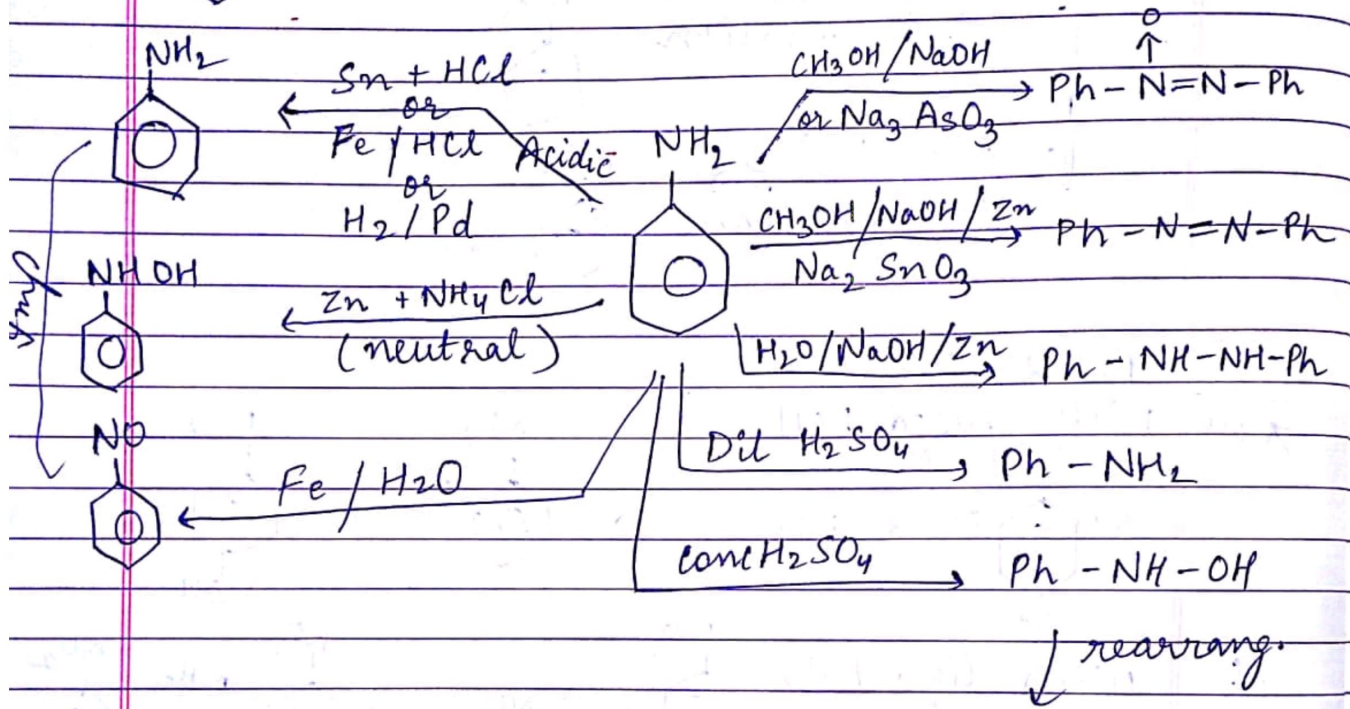 NH2
Sn + HCl
or
Fe / HCl
or
H2 / Pd
Acidic
NH2
CH3OH/NaOH
or Na3 AsO3
O
↑
Ph - N=N - Ph
CH3OH/NaOH/Zn
Na2 SnO3
Ph - N=N-Ph
NHOH
Zn + NH4Cl
(neutral)
H2O/NaOH/Zn
Ph - NH-NH-Ph
NO
Fe / H2O
Dil H2SO4
Ph - NH2
conc H2SO4
Ph - NH - OH
rearrang.